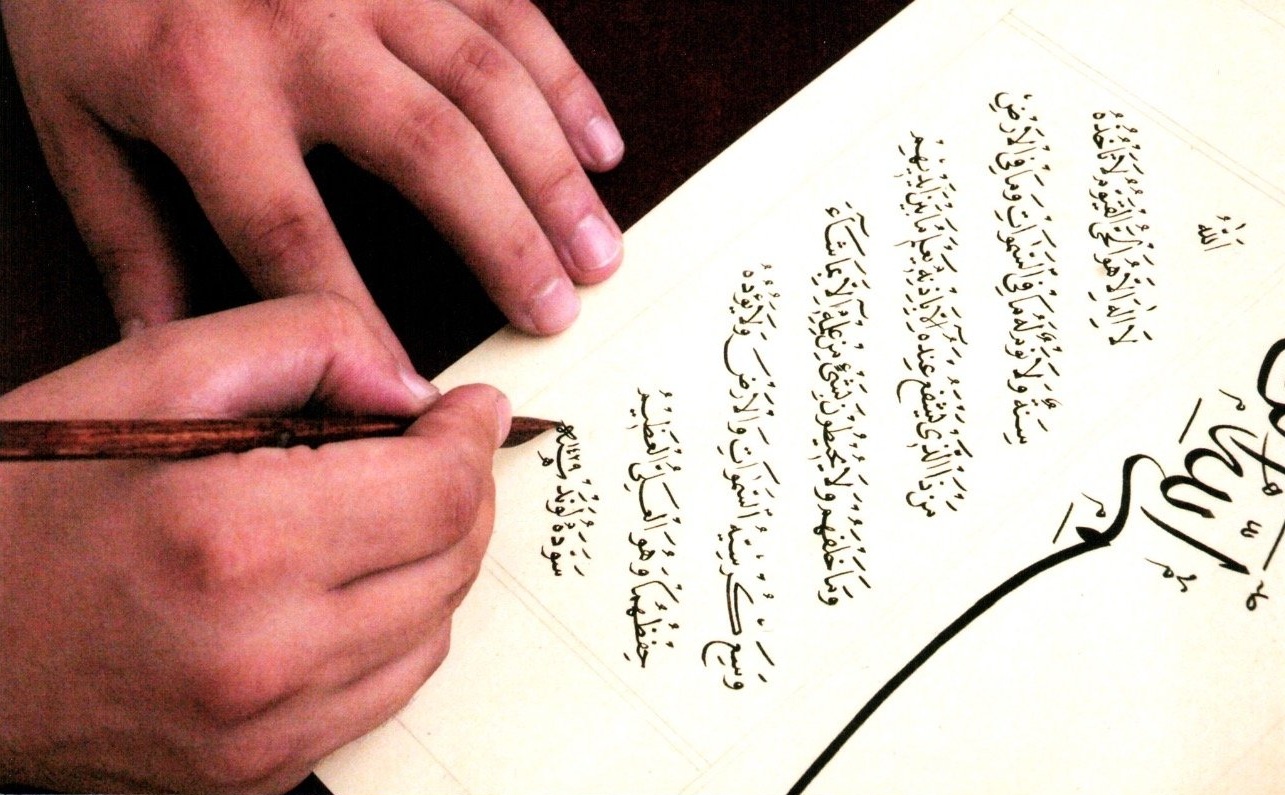 اَللّٰهُ
لَا اِلٰهَ اِلَّا هُوَ الْحَيُّ الْقَيُّومُ لَا تَأْخُذُهُ
سِنَةٌ وَلَا نَوْمٌ لَهُ مَا فِي السَّمٰوَاتِ وَمَا فِي الْاَرْضِ
مَنْ ذَا الَّذِي يَشْفَعُ عِنْدَهُ اِلَّا بِاِذْنِهِ يَعْلَمُ مَا بَيْنَ اَيْدِيهِمْ
وَمَا خَلْفَهُمْ وَلَا يُحِيطُونَ بِشَيْءٍ مِنْ عِلْمِهِ اِلَّا بِمَا شَاءَ
وَسِعَ كُرْسِيُّهُ السَّمٰوَاتِ وَالْاَرْضَ وَلَا يَؤُدُهُ
حِفْظُهُمَا وَهُوَ الْعَلِيُّ الْعَظِيمُ
سَوَّدَهُ ١٤٢٩